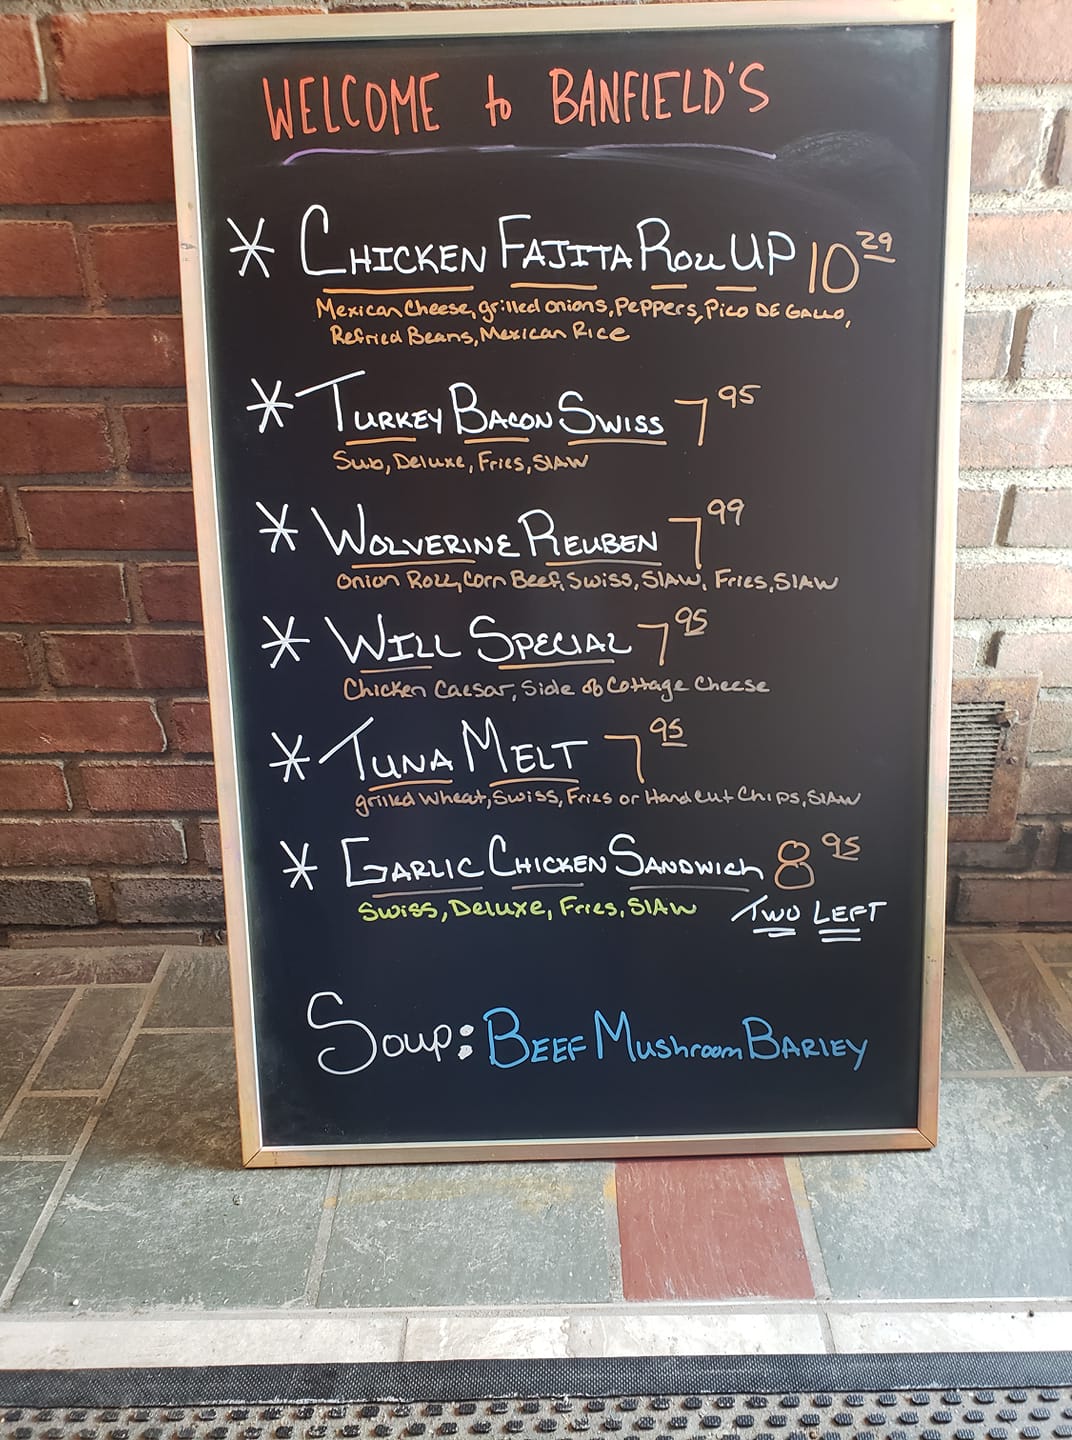 WELCOME to BANFIELD'S
* CHICKEN FAJITA ROLL UP 10 29
Mexican Cheese, grilled onions, Peppers, Pico DE GALLO,
Refried Beans, Mexican Rice
* TURKEY BACON SWISS 7 95
Sub, Deluxe, Fries, SLAW
* WOLVERINE REUBEN 7 99
Onion Roll, Corn Beef, Swiss, SLAW, Fries, SLAW
* WILL SPECIAL 7 95
Chicken Caesar, Side of Cottage Cheese
* TUNA MELT 7 95
grilled Wheat, Swiss, Fries or Hand Cut Chips, SLAW
* GARLIC CHICKEN SANDWICH 8 95
Swiss, Deluxe, Fries, SLAW TWO LEFT
Soup: BEEF Mushroom BARLEY